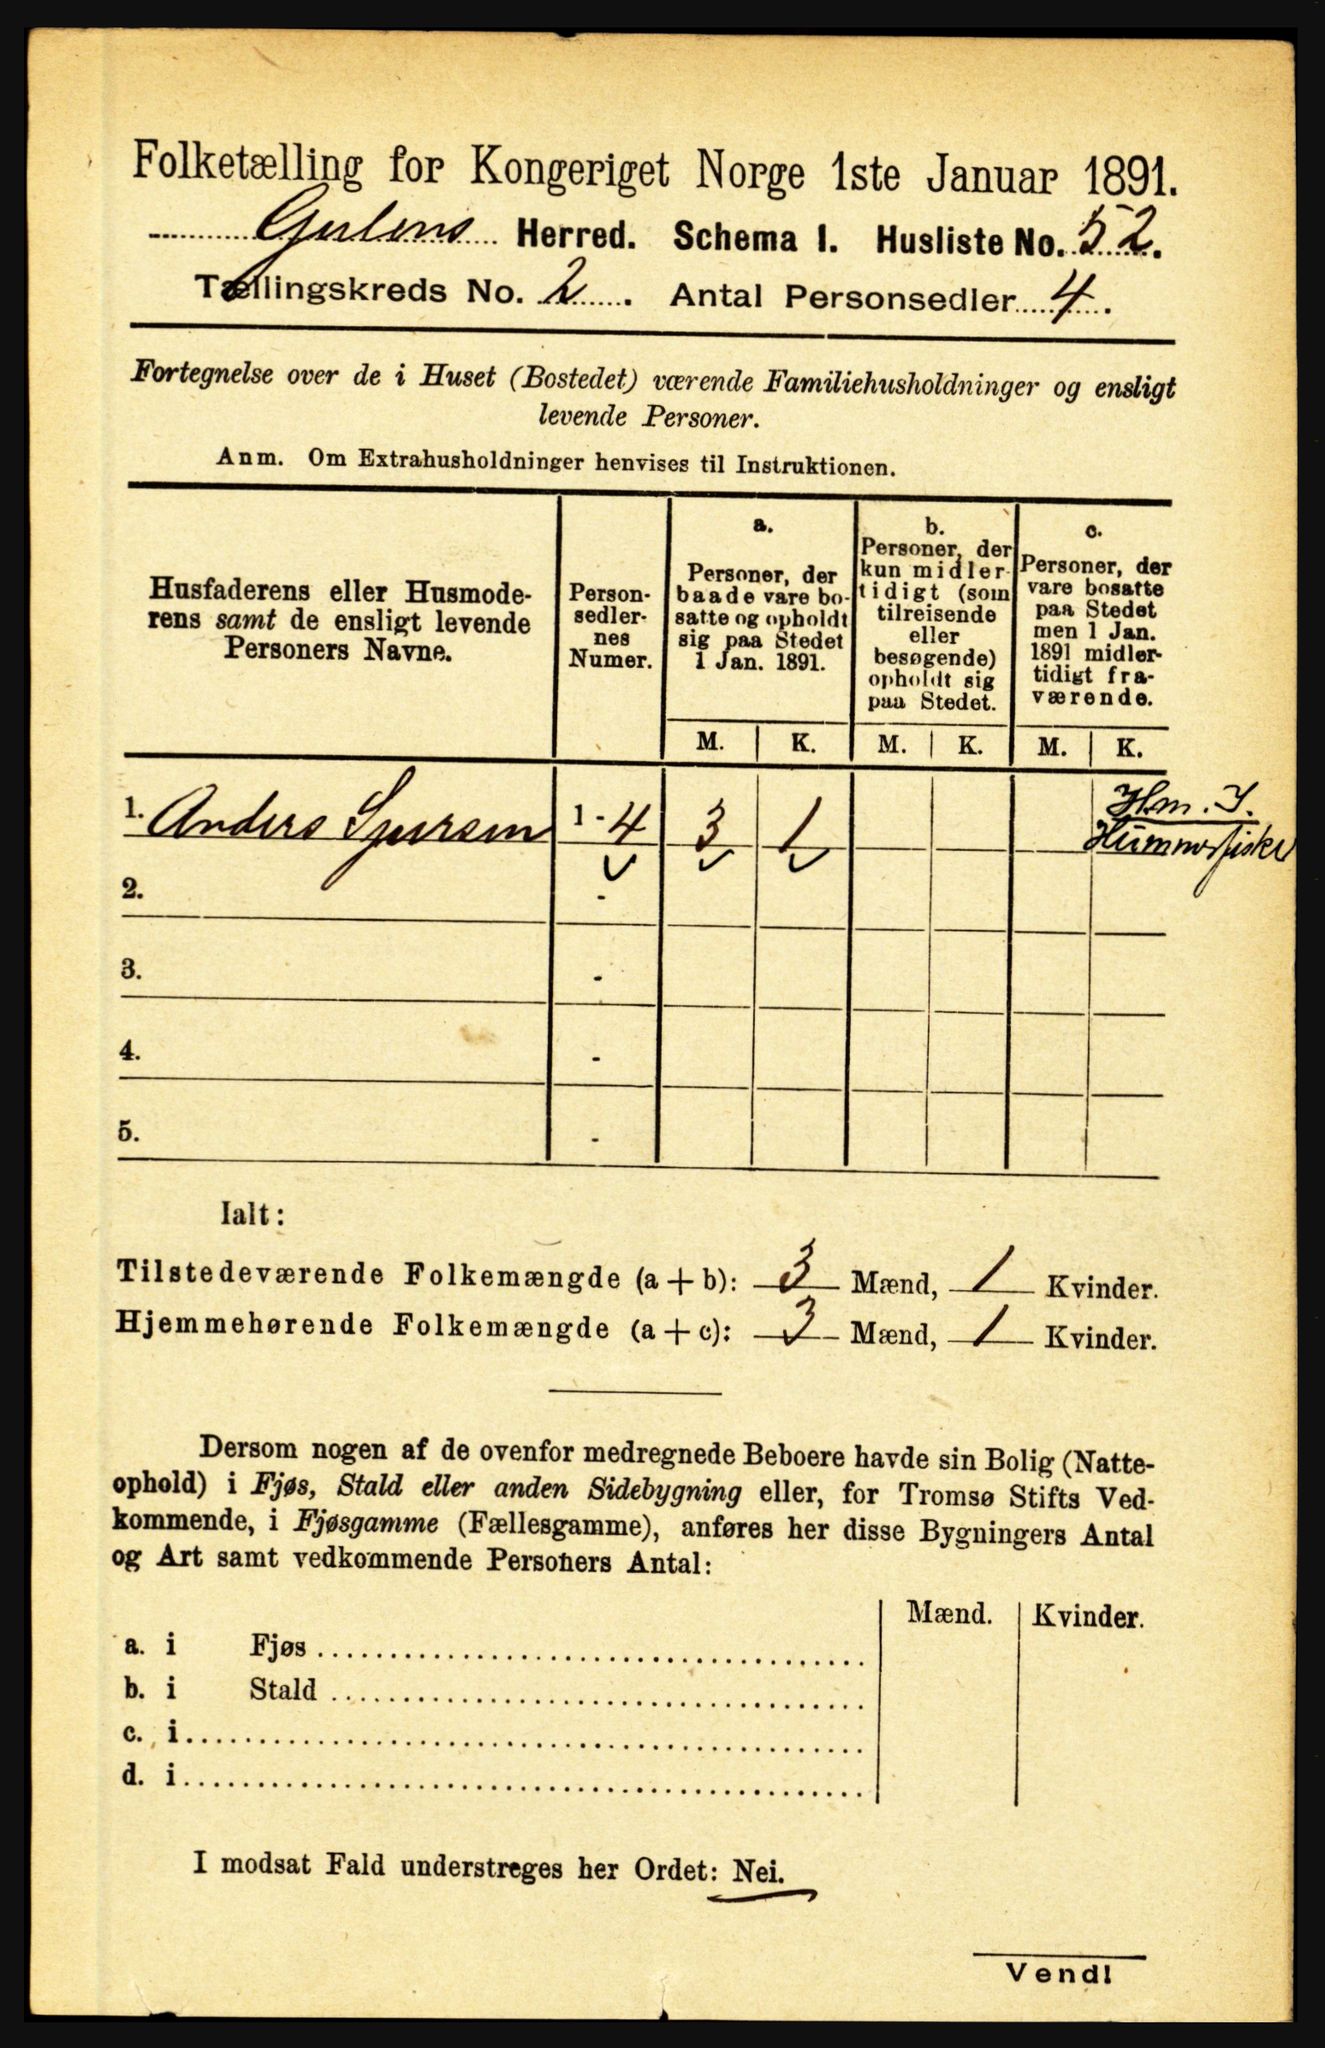 Folketælling for Kongeriget Norge 1ste Januar 1891.
Gulens Herred. Schema I. Husliste No. 52.
Tællingskreds No. 2. Antal Personsedler 4.
Fortegnelse over de i Huset (Bostedet) værende Familiehusholdninger og ensligt
levende Personer.
Anm. Om Extrahusholdninger henvises til Instruktionen.
Husfaderens eller Husmode-
rens samt de ensligt levende
Personers Navne.
Person-
sedler-
nes
Numer.
a.
Personer, der
baade vare bo-
satte og opholdt
sig paa Stedet
1 Jan. 1891.
b.
Personer, der
kun midler-
tidigt (som
tilreisende
eller
besøgende)
opholdt sig
paa Stedet.
c.
Personer, der
vare bosatte
paa Stedet
men 1 Jan.
1891 midler-
tidigt fra-
værende.
M. K. M. K. M. K.
1. Anders Sjursen 1-4 3 1 Hm. I.
Hummerfisker
2. -
3. -
4. -
5. -
Ialt:
Tilstedeværende Folkemængde (a + b): 3 Mænd, 1 Kvinder.
Hjemmehørende Folkemængde (a + c): 3 Mænd, 1 Kvinder.
Dersom nogen af de ovenfor medregnede Beboere havde sin Bolig (Natte-
ophold) i Fjøs, Stald eller anden Sidebygning eller, for Tromsø Stifts Ved-
kommende, i Fjøsgamme (Fællesgamme), anføres her disse Bygningers Antal
og Art samt vedkommende Personers Antal:
Mænd. Kvinder.
a. i Fjøs
b. i Stald
c. i
d. i
I modsat Fald understreges her Ordet: Nei.
Vend!